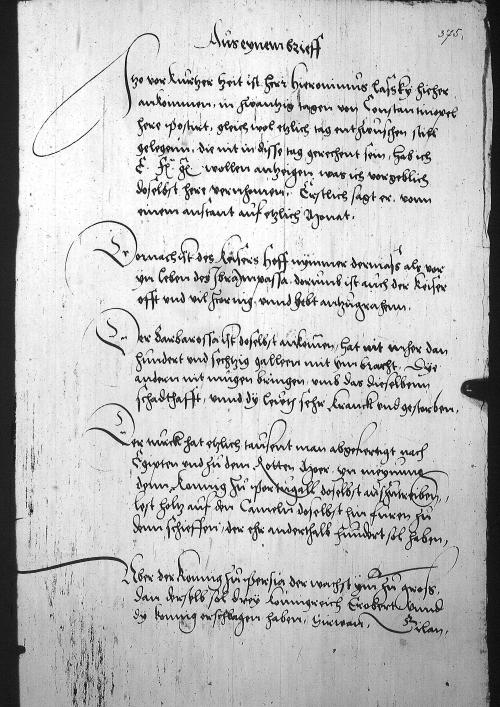 375.
Aus eynem brieff
Iho vor kurtzer Zeit ist her Hieronimus Lassky hieher
ankommen, in zwantzig tagen von Constantinopel
here postirt, gleich wol etzlich tag entzwuschen still
gelegenn, die nit in disse tag gerechent sein, hab ich
wollen antzeigen was ich vorgeblich
doselbst here vernhomen. Erstlich sagt er, vonn
einem anstant auf etzlich Monat.
Dornach ist des Keisers Hoff nymmer dermass als vor
yn leben des Ibraimpassa, dorumb ist auch der Keiser
offt und vil zornig, unnd hebt
Der Barbarossa ist doselbst ankomen, hat nit mher dan
hundert und sechtzig galleen mit ym bracht. Dye
andern nit mugen bringen, umb das dieselbenn
schadthafft, unnd dy leuth sehr kranck und gestorben.
Der turck hat etzlich tausent man abgefertigt nach
Egypten und zu dem Rotten Meer, yn meynung
denn Konnig zu Portugall doselbst auszutreiben,
lest holtz auf den Cameln doselbst hin furen zu
denn schieffen, der ehr anderthalb hundert sol haben,
Aber der Konnig zu Persia der wachst ym zu gross,
dan derselb sol drey konnigreich Erobert unnd
dy konnig erschlagen haben, Sirwan, Gilan,